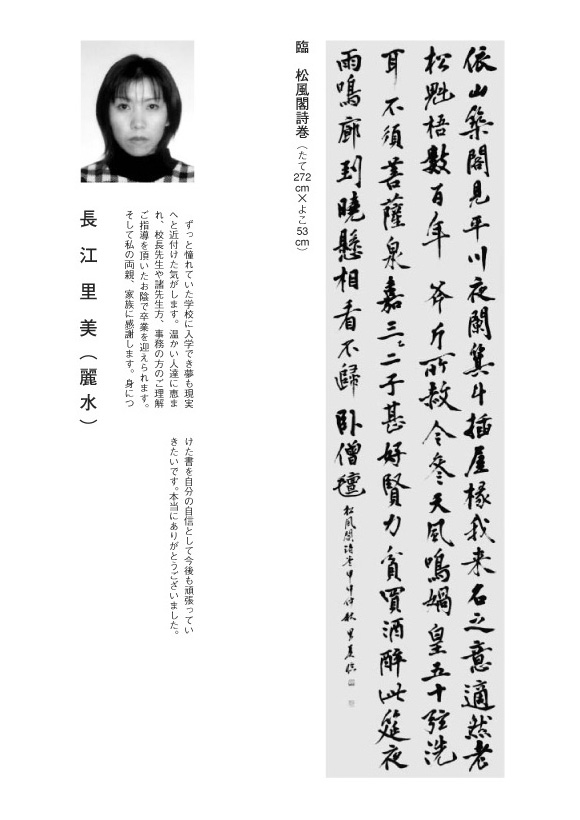 依山築閣見平川夜闌箕斗插屋椽我来名之意適然老
松魁梧數百年斧斤所赦今參天風鳴媧皇五十弦洗
耳不須菩薩泉嘉三二子甚好賢力貧買酒醉此筵夜
雨鳴廊到曉懸相看不歸臥僧氈 松風閣詩巻甲申仲秋里美臨
臨　松風閣詩巻（たて272cm×よこ53cm）
ずっと憧れていた学校に入学でき夢も現実
へと近付けた気がします。温かい人達に恵ま
れ、校長先生や諸先生方、事務の方のご理解
ご指導を頂いたお陰で卒業を迎えられます。
そして私の両親、家族に感謝します。身につ
けた書を自分の自信として今後も頑張ってい
きたいです。本当にありがとうございました。
長江里美（麗水）